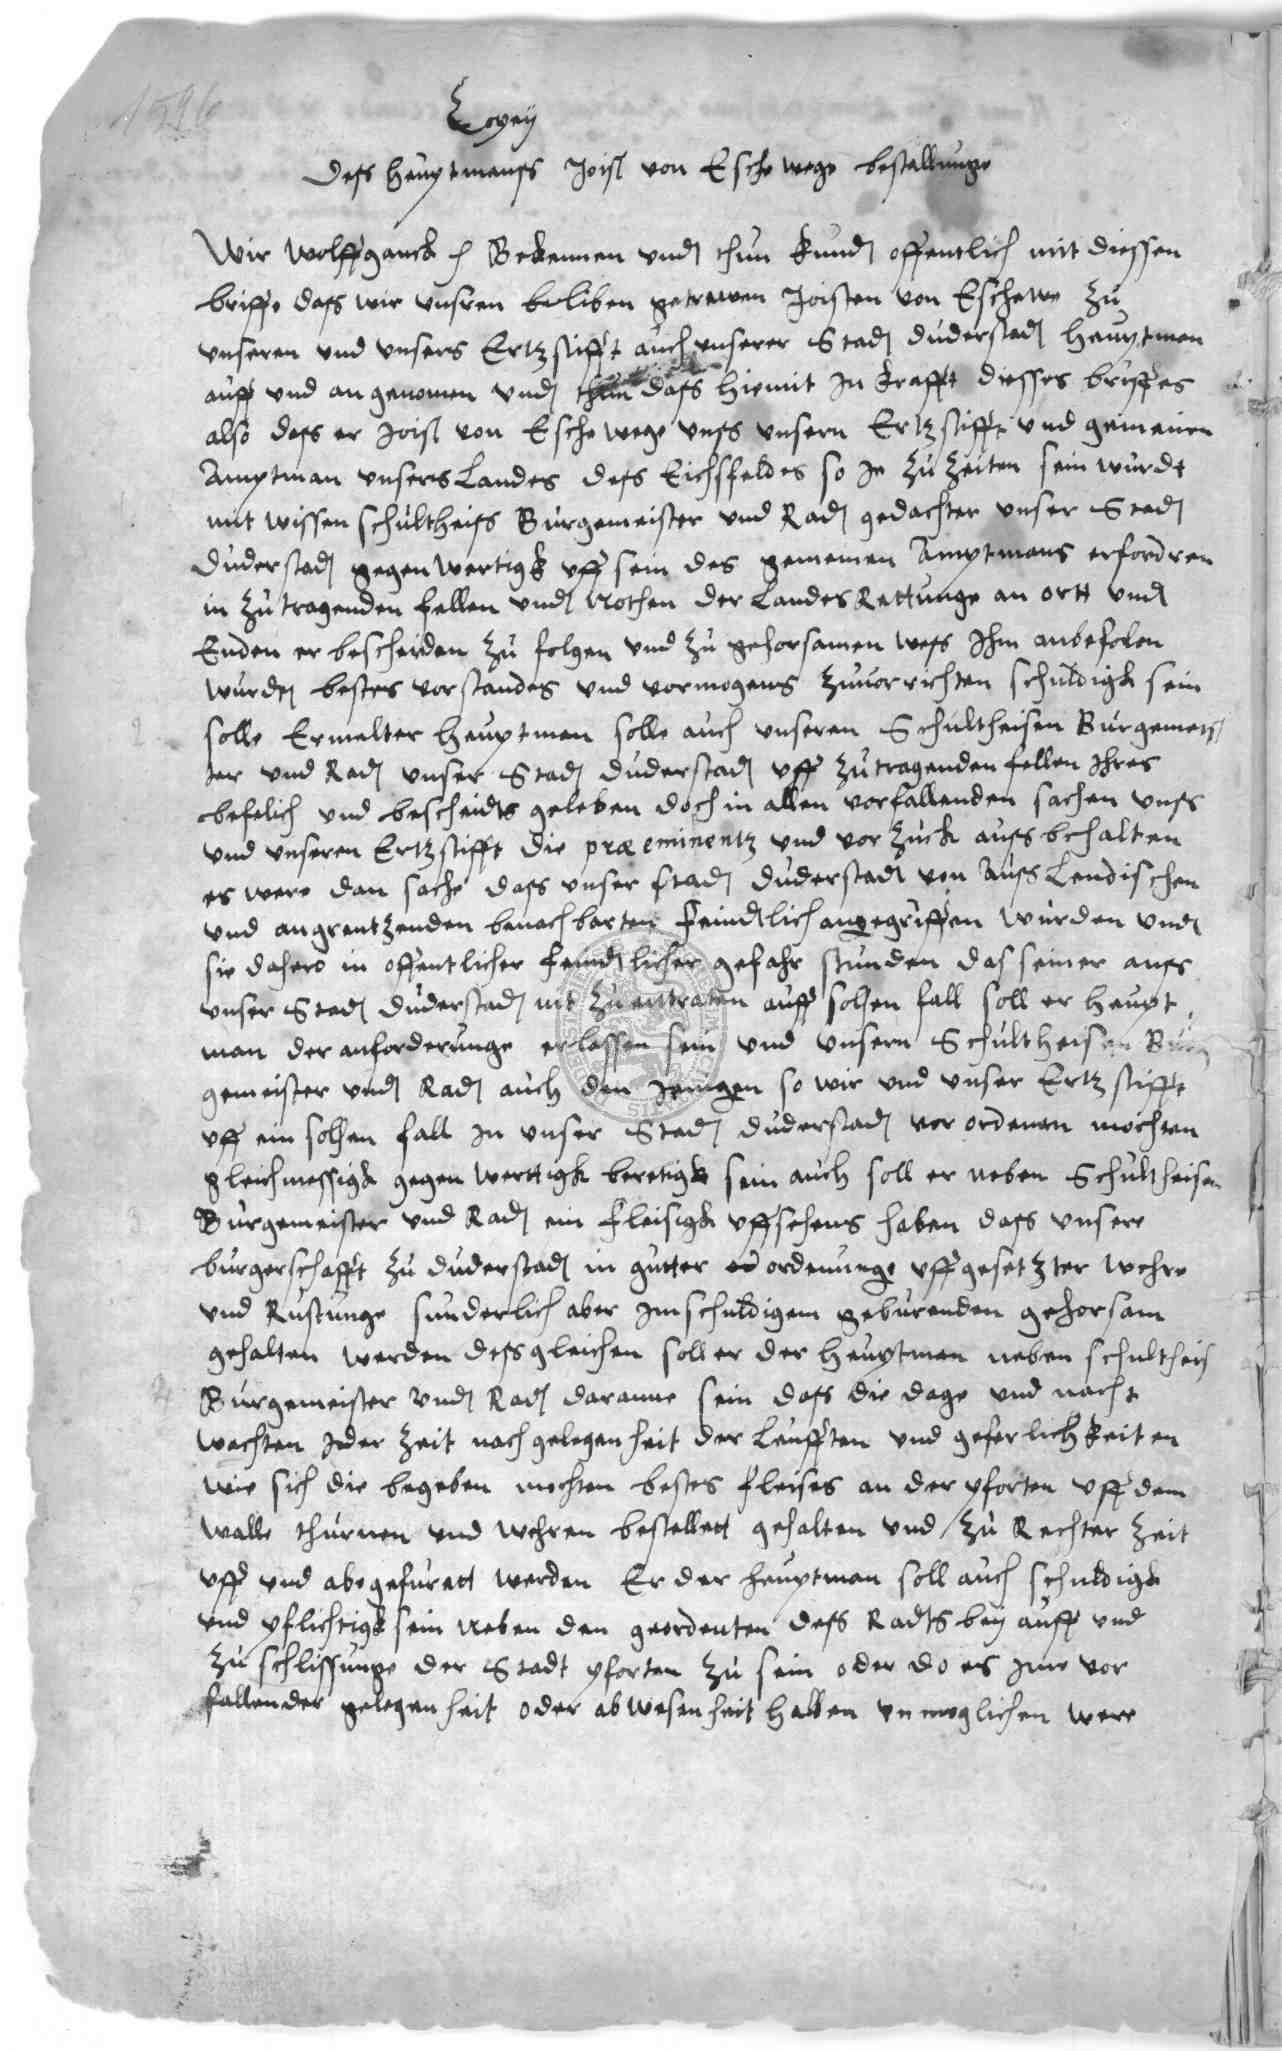 1596
Copey
Dess Heuptmanss Joist von Eschewege bestallunge
Wir Wolffganck Bekennen und thun kund offentlich mit diessen
briffe dass wir unsren liben getrewen Joisten von Eschewe zu
unseren und unsers Ertzstifft auch unserer Stad Duderstad Heuptman
auff und angenomen und thun dass hiemit in krafft diesses briffes
also dass er Joist von Eschewege unss unsern Ertzstifft und gemeinen
Amptman unsers Landes dess Eichsfeldes so Je zu Zeiten sein wurdt
mit wissen schultheiss Burgemeister und Rad gedachter unser Stad
Duderstad gegenwertigk uff sein des gemeinen Amptmans erfordren
in zutragenden fellen und Nothen der Landes Rettunge an ortt und
Enden er bescheiden zu folgen und zu gehorsamen wess Ihm anbefolen
wurde bestes vorstandes und vormogens zuvorrichten schuldigk sein
solle Ermelter Heuptman solle auch unseren Schultheisen Burgemeis
ter und Rad unser Stad Duderstad uff zutragenden fellen Ihres
befelich und bescheidts geleben doch in allen vorfallenden sachen unss
und unseren Ertzstifft die præeminentz und vorzuck aussbehalten
es were dan sache dass unser stad Duderstad von Ausslendischen
und angrentzenden benachbarten feindlich angegriffen wurden und
sie dahero in offentlicher feindlicher gefahr stunden das seiner auss
unser Stad Duderstad nit zu entraten auff solchen fall soll er Heupt
man der anforderunge erlassen sein und unsern Schultheisen Bur
gemeister und Rad auch den Jenigen so wir und unser Ertzstifft
uff ein solchen fall in unser Stad Duderstad vorordenen mochten
gleichmessigk gegenwerttigk beretigk sein auch soll er neben Schultheisen
Burgemeister und Rad ein fleisigk uffsehens haben dass unsere
burgerschafft zu Duderstad in gutter ordenunge uffgesetzter wehre
und Rustunge sunderlich aber im schuldigem geburenden gehorsam
gehalten werden dessgleichen soll er der Heuptman neben schultheis
Burgemeister und Rad daranne sein dass die dage und nacht
wachten ider Zeit nach gelegenheit der Leufften und geferlichkeiten
wie sich die begeben mochten bestes fleises an der pforten uff dem
walle thurnen und wehren bestellett gehalten und zu Rechter Zeit
uff und abegefurett werden Er der Heuptman soll auch schuldigk
und pflichtigk sein neben den geordenten dess Radts bey auff und
zuschlissunge der Stadt pforten zu sein oder do es ime vor
fallender gelegenheit oder abwesenheit halben unmoglichen were